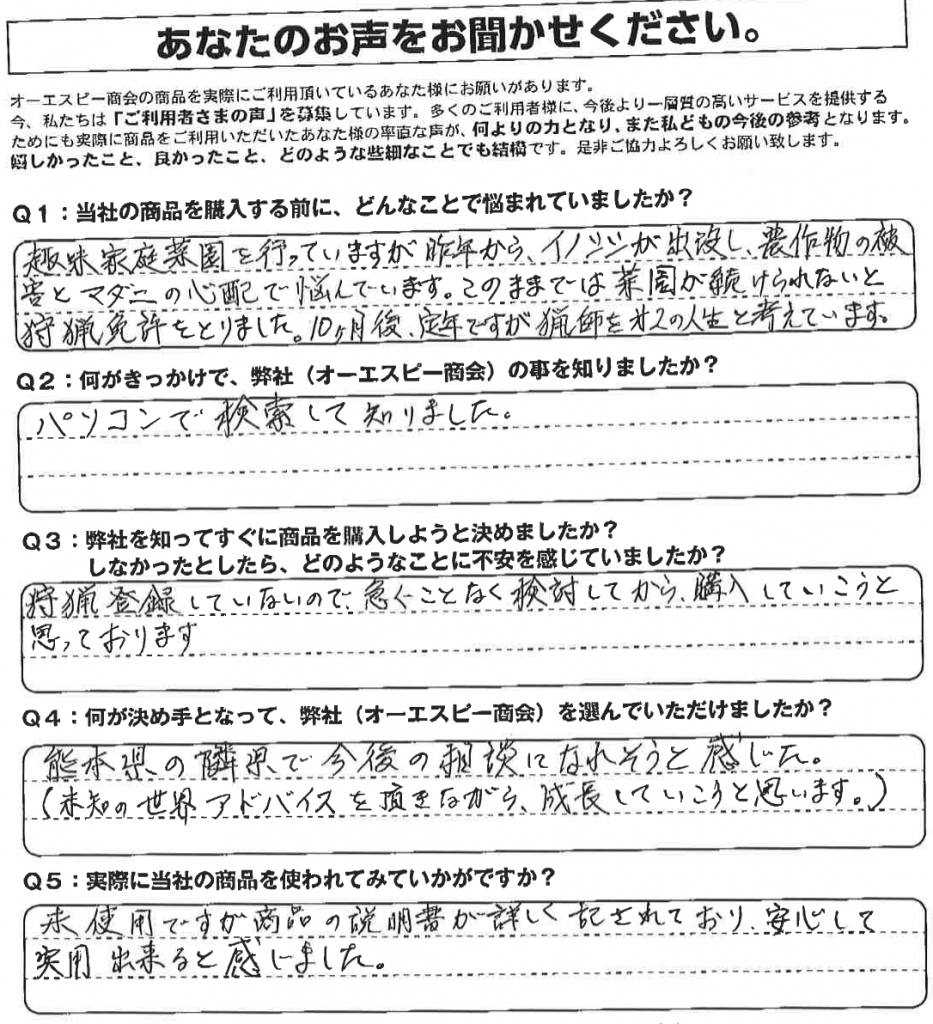 あなたのお声をお聞かせください。
オーエスピー商会の商品を実際にご利用頂いているあなた様にお願いがあります。
今、私たちは「ご利用者さまの声」を募集しています。多くのご利用者様に、今後より一層質の高いサービスを提供する
ためにも実際に商品をご利用いただいたあなた様の率直な声が、何よりの力となり、また私どもの今後の参考となります。
嬉しかったこと、良かったこと、どのような些細なことでも結構です。是非ご協力よろしくお願い致します。
Q1：当社の商品を購入する前に、どんなことで悩まれていましたか？
趣味家庭菜園を行っていますが昨年から、イノシシが出没し、農作物の被
害とマダニの心配で悩んでいます。このままでは菜園が続けられないと
狩猟免許をとりました。10ヶ月後、定年ですが猟師を才2の人生と考えています。
Q2：何がきっかけで、弊社（オーエスピー商会）の事を知りましたか？
パソコンで検索して知りました。
Q3：弊社を知ってすぐに商品を購入しようと決めましたか？
しなかったとしたら、どのようなことに不安を感じていましたか？
狩猟登録していないので、急ぐことなく検討してから、購入していこうと
思っております
Q4：何が決め手となって、弊社（オーエスピー商会）を選んでいただけましたか？
熊本県の隣県で今後の相談になれそうと感じた。
（未知の世界アドバイスを頂きながら、成長していこうと思います。）
Q5：実際に当社の商品を使われてみていかがですか？
未使用ですが商品の説明書が詳しく記されており、安心して
実用出来ると感じました。